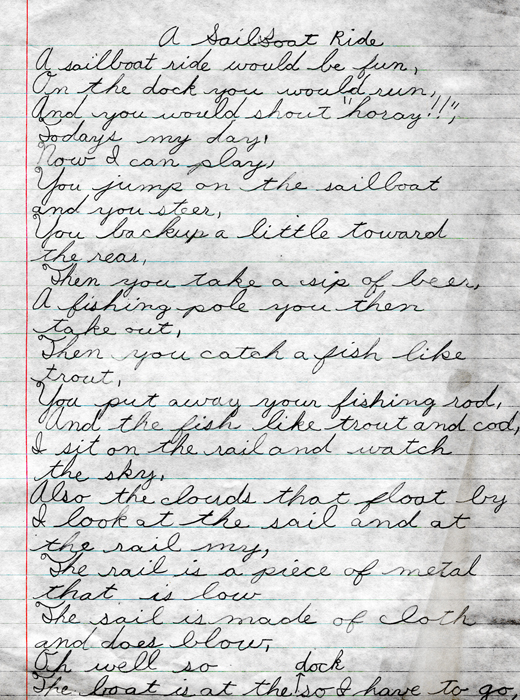 A Sailboat Ride
A sailboat ride would be fun,
On the dock you would run,
And you would shout "horay!!",
Todays my day!
Now I can play,
You jump on the sailboat
and you steer,
You backup a little toward
the rear,
Then you take a sip of beer,
A fishing pole you then
take out,
Then you catch a fish like
trout,
You put away your fishing rod,
And the fish like trout and cod,
I sit on the rail and watch
the sky,
Also the clouds that float by
I look at the sail and at
the rail my,
The rail is a piece of metal
that is low
The sail is made of cloth
and does blow,
Oh well so
dock
The boat is at the so I have to go,